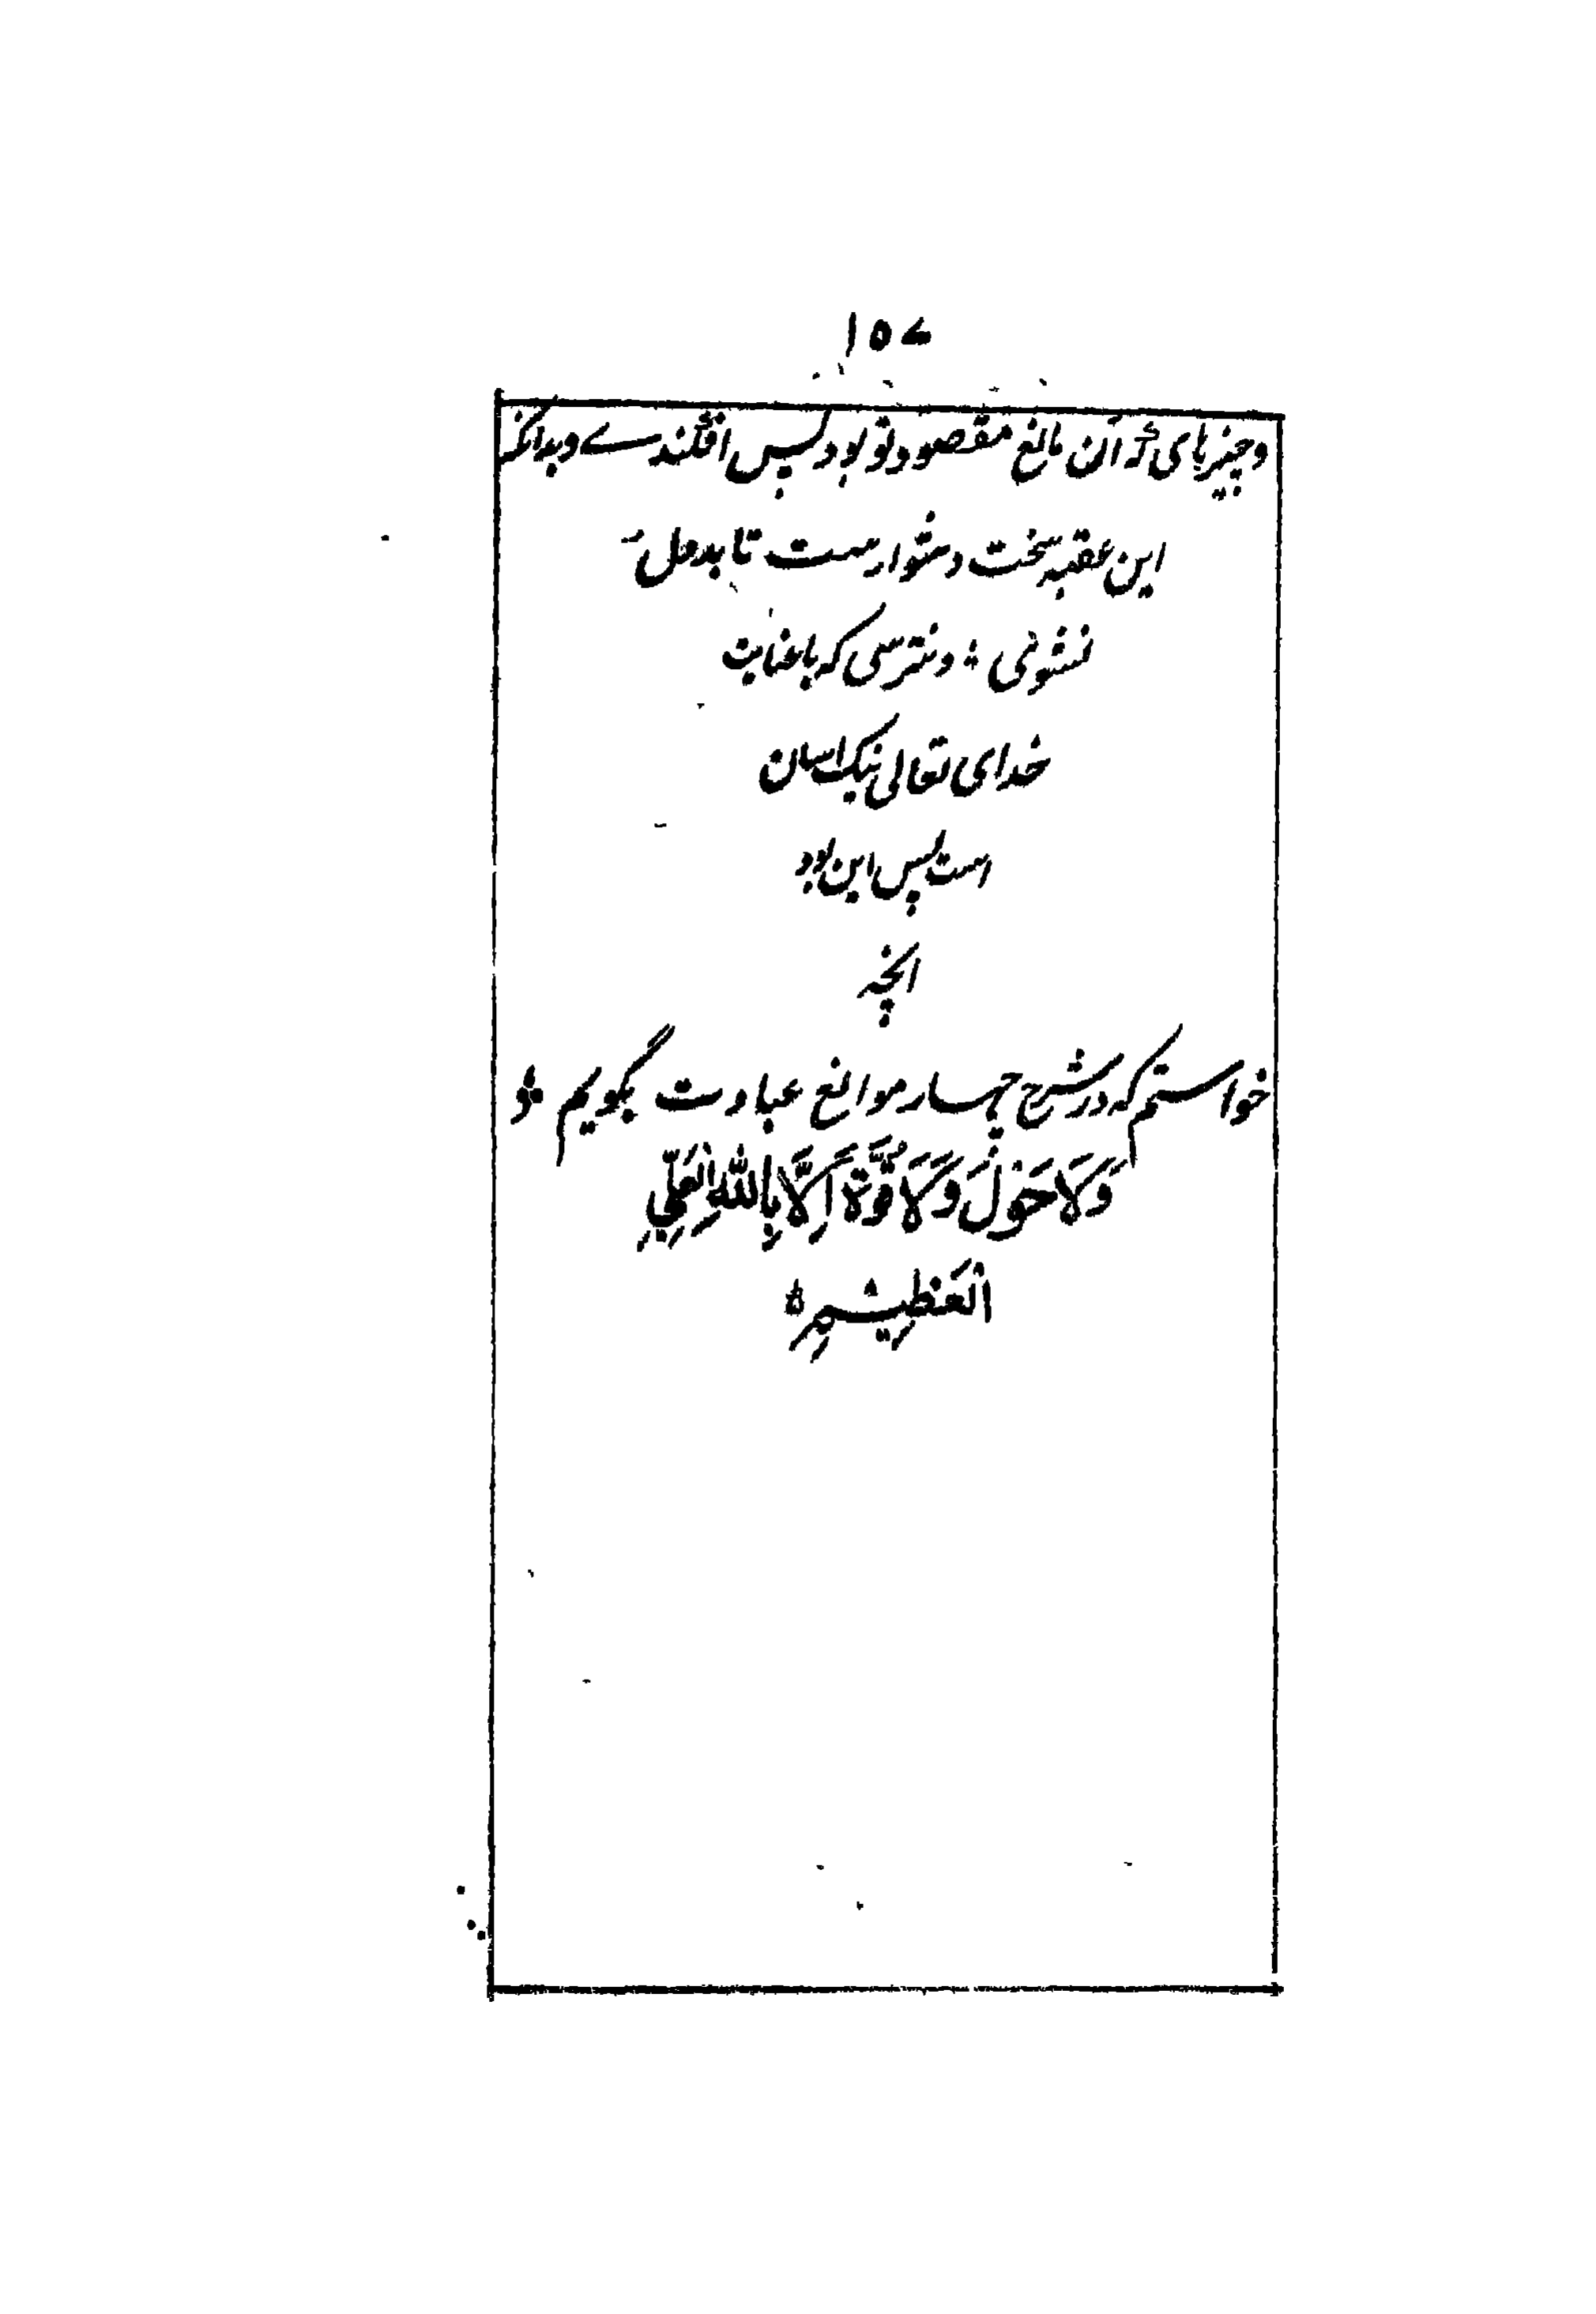 ١٥٧
وچیزہای کہ آن مانع مقصود تو بود پس افگندے وبدانکہ
این عقبہ سخت دشوارست تا بددل
نشوئی ؛ ونترسی کہ باعنایت
خدای تعالی نیک اسان
است پس این بود
انچہ
خواستم کہ در شرح چہار موانع عبادت بگویم ؞
وَلَاحَوْلَ وَلَاقُوَّةَ اِلَّا بِاللّٰهِ الْعَلِيِّ
الْعَظِيْمِ ؛